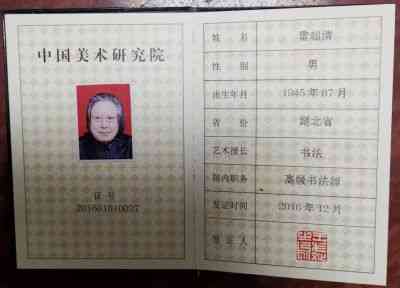 中国美术研究院
证号
姓名
性别 男
出生年月 1945年07月
省份 湖北省
艺术擅长 书法
院内职务 高级书法师
发证时间 2016年12月
签证人